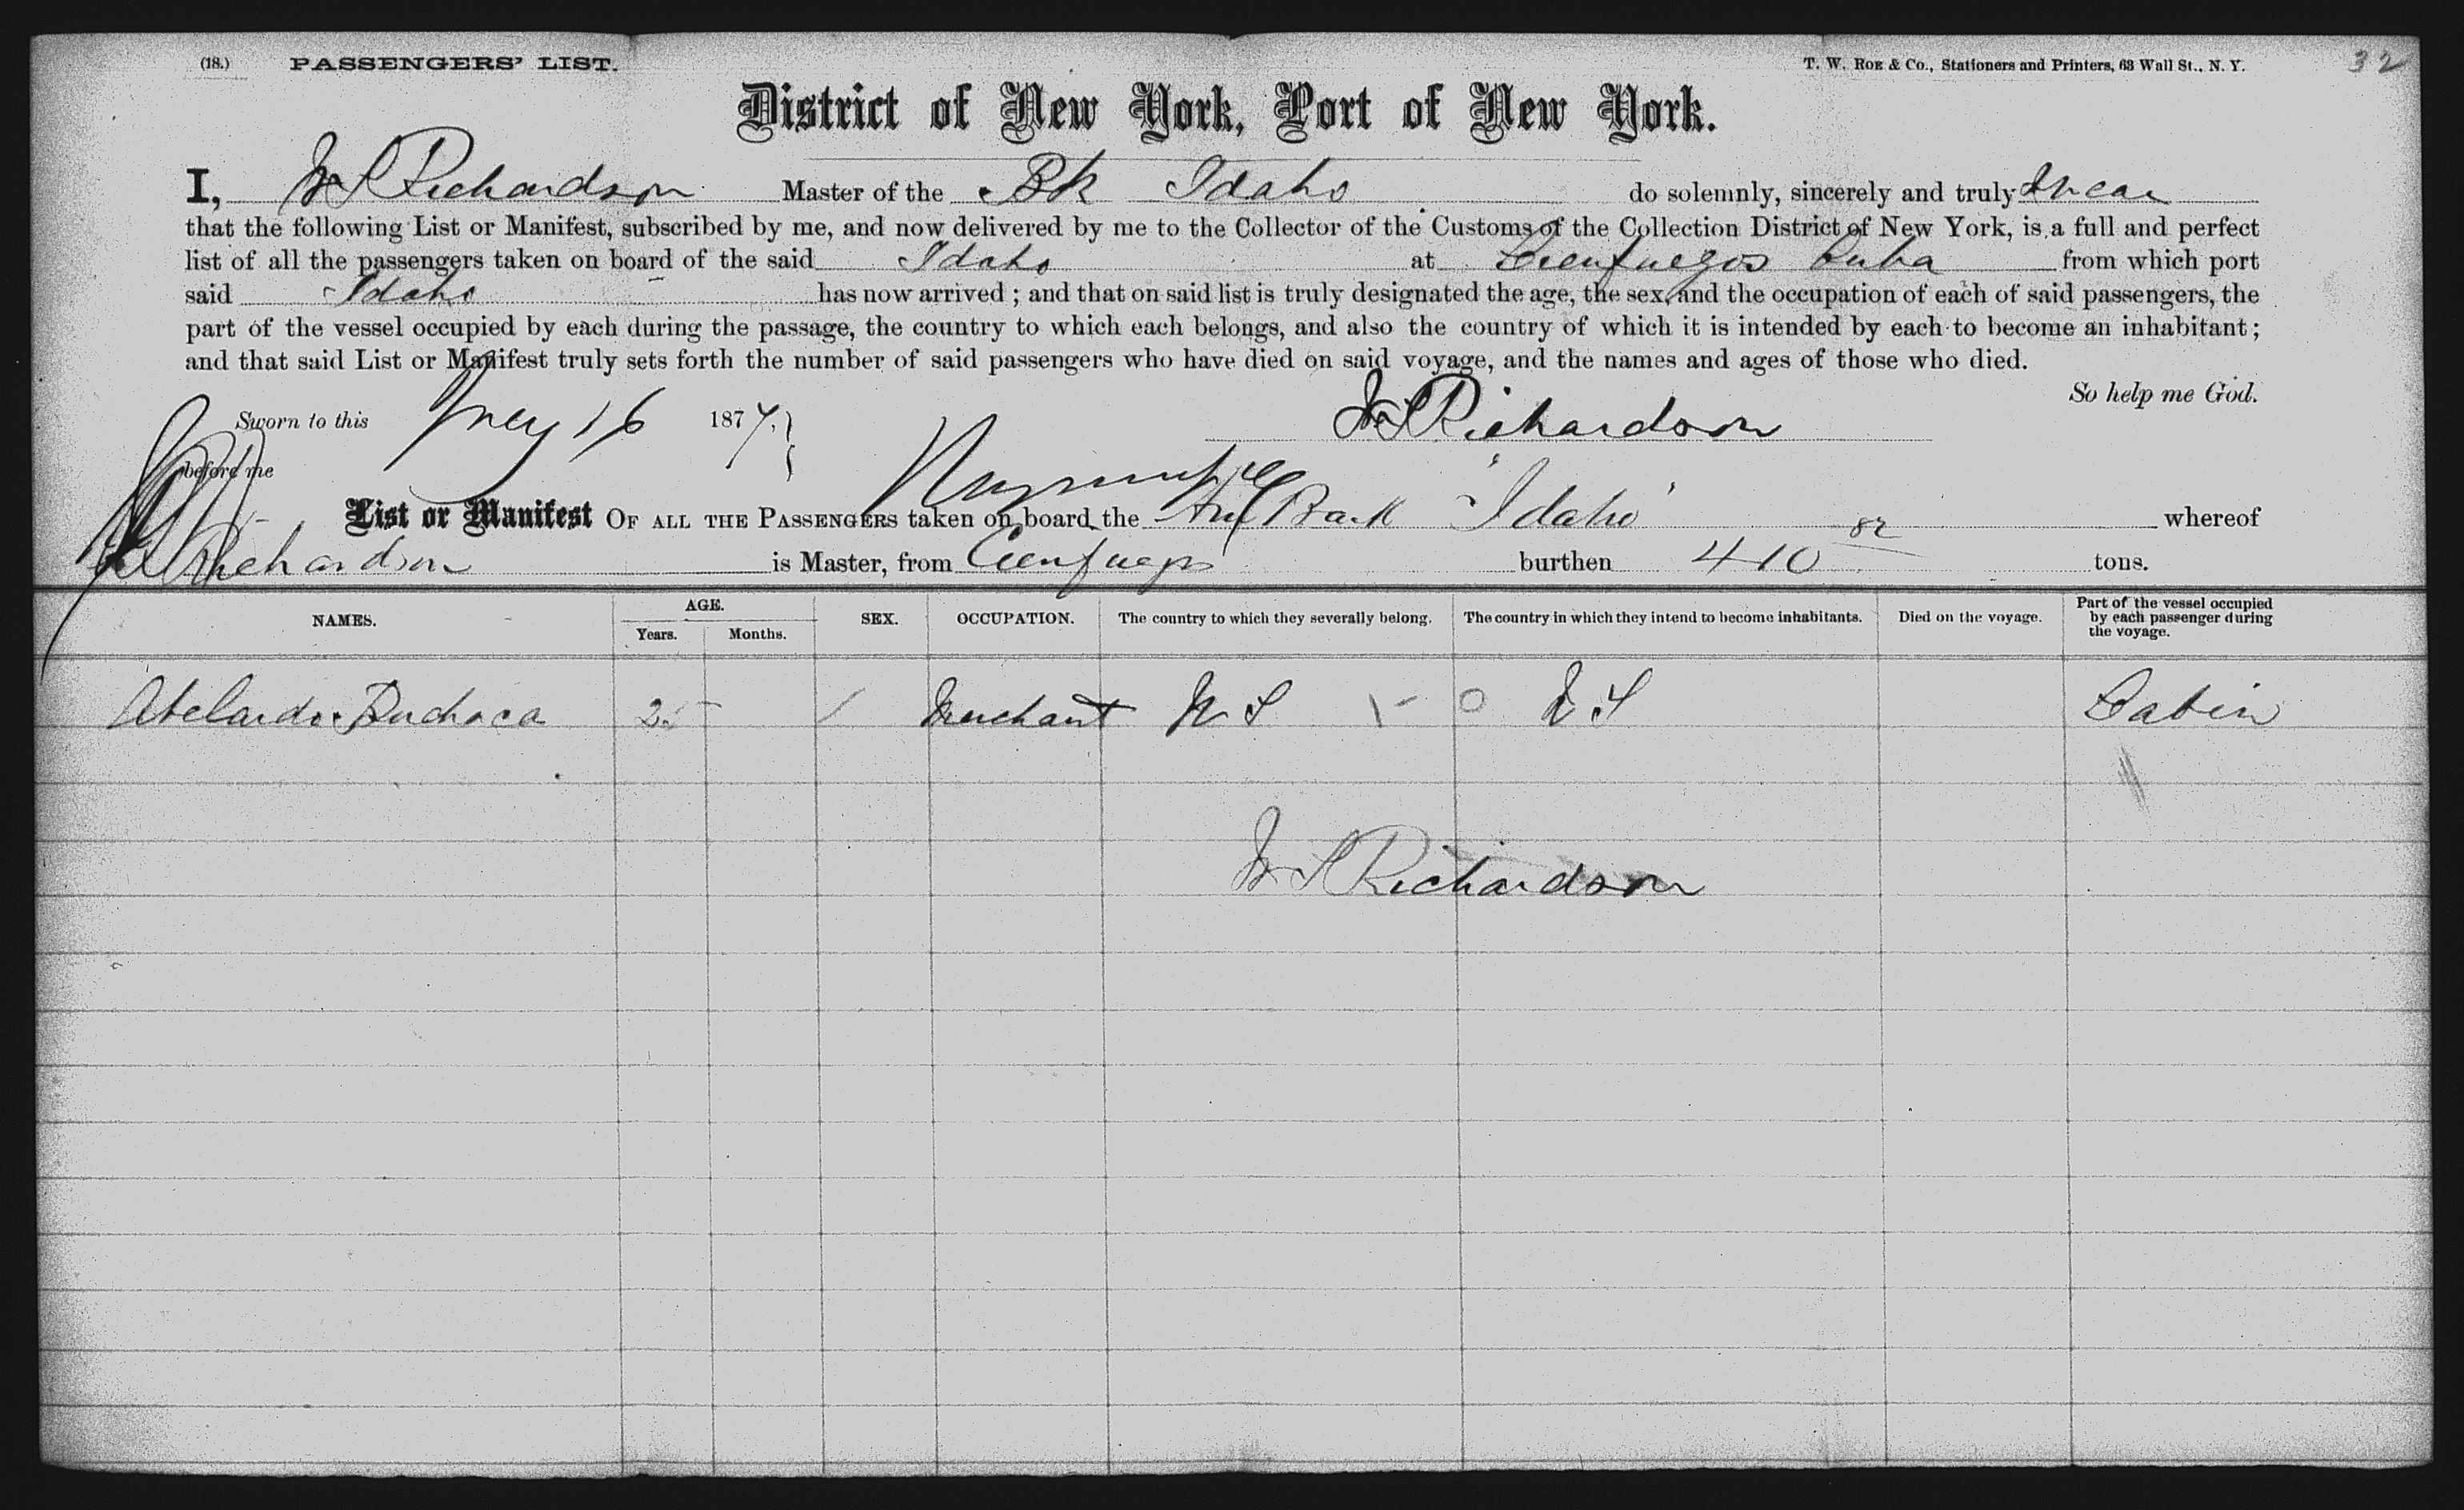 (18.) PASSENGERS' LIST.
T. W. ROE & Co., Stationers and Printers, 63 Wall St., N. Y.
32
District of New York, Port of New York.
I, Richardson Master of the Bk Idaho do solemnly, sincerely and truly Swear
that the following List or Manifest, subscribed by me, and now delivered by me to the Collector of the Customs of the Collection District of New York, is a full and perfect
list of all the passengers taken on board of the said Idaho at Cienfuegos Cuba from which port
said Idaho has now arrived ; and that on said list is truly designated the age, the sex, and the occupation of each of said passengers, the
part of the vessel occupied by each during the passage, the country to which each belongs, and also the country of which it is intended by each to become an inhabitant ;
and that said List or Manifest truly sets forth the number of said passengers who have died on said voyage, and the names and ages of those who died.
So help me God.
Sworn to this May 16 1877. Richardson
before me
List or Manifest OF ALL THE PASSENGERS taken on board the Am Bark Idaho whereof
Richardson is Master, from Cienfuegos burthen 410 82 tons.
NAMES. AGE. SEX. OCCUPATION. The country to which they severally belong. The country in which they intend to become inhabitants. Died on the voyage. Part of the vessel occupied by each passenger during the voyage.
Years. Months.
Abelardo 25 Merchant U S U S Cabin
Richardson